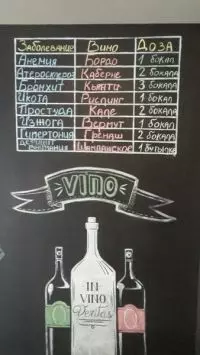 Заболевание Вино Доза
Анемия Бордо 1 бокал
Атеросклероз Каберне 2 бокала
Бронхит Кьянти 3 бокала
Икота Рислинг 1 бокал
Простуда Каре 2 бокала
Изжога Вермут 1 бокал
Гипертония Гренаш 2 бокала
Дефицит внимания Шампанское 1 бутылка
VINO
IN
VINO
Veritas